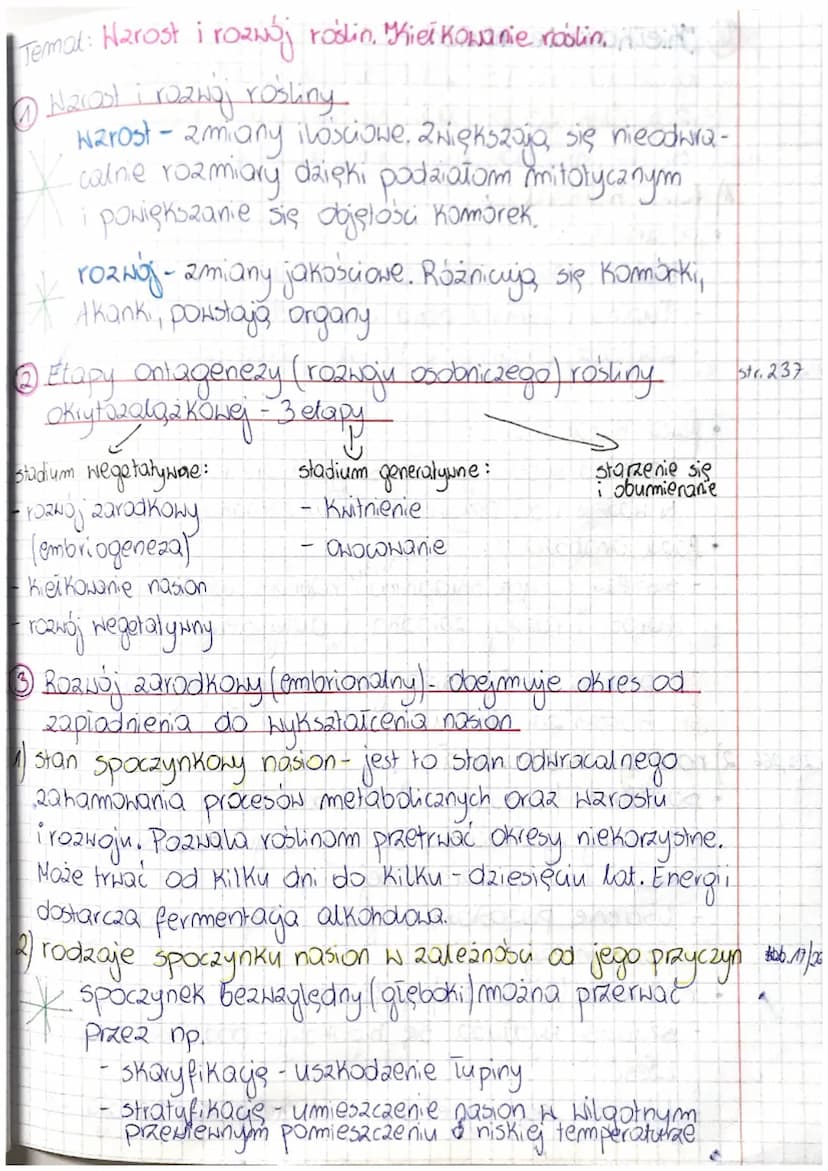 Temat: Wzrost i rozwój roślin. Kiełkowanie roślin.
① Wzrost i rozwój rośliny
wzrost - zmiany ilościowe. Zwiększają się nieodwra-
calnie rozmiary dzięki podziałom mitotycznym
i powiększanie się objętości komórek.
rozwój - zmiany jakościowe. Różnicują się komórki,
tkanki, powstają organy
② Etapy ontogenezy (rozwoju osobniczego) rośliny str. 237
okrytozalążkowej - 3 etapy
stadium wegetatywne: stadium generatywne: starzenie się
i obumieranie
- rozwój zarodkowy - kwitnienie
(embriogeneza) - owocowanie
- kiełkowanie nasion
- rozwój wegetatywny
③ Rozwój zarodkowy (embrionalny) - obejmuje okres od
zapłodnienia do wykształcenia nasion
1) stan spoczynkowy nasion - jest to stan odwracalnego
zahamowania procesów metabolicznych oraz wzrostu
i rozwoju. Pozwala roślinom przetrwać okresy niekorzystne.
Może trwać od kilku dni do kilku - dziesięciu lat. Energii
dostarcza fermentacja alkoholowa.
2) rodzaje spoczynku nasion w zależności od jego przyczyn
spoczynek bezwzględny (głęboki) można przerwać
przez np.
- skaryfikację - uszkodzenie łupiny
- stratyfikację - umieszczenie nasion w wilgotnym
przewiewnym pomieszczeniu o niskiej temperaturze